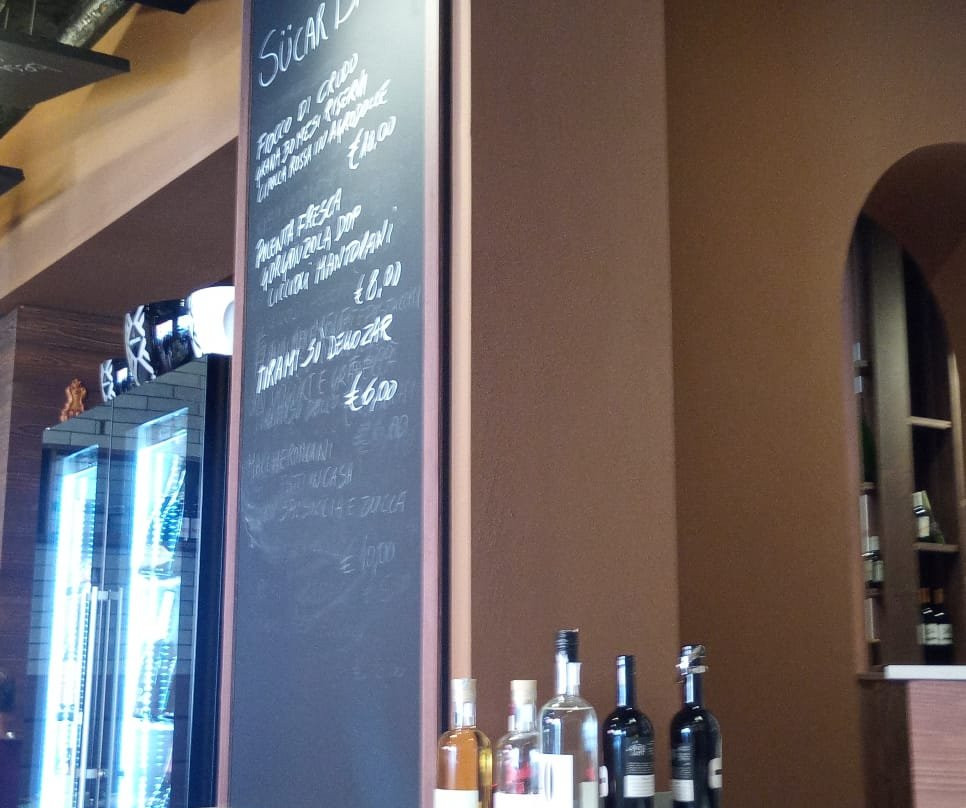 SÜCAR
FIOCCO DI CRUDO
GRANA 30 MESI RISERVA
CIPOLLA ROSSA IN AGRODOLCE
€10.00
POLENTA FRESCA
GORGONZOLA DOP
CICCIOLI MANTOVANI
€8,00
TIRAMI SÙ DELLO ZAR
€6,00
MACCHERONCINI
FATTI IN CASA
SALSICCIA E ZUCCA
€ 10,00